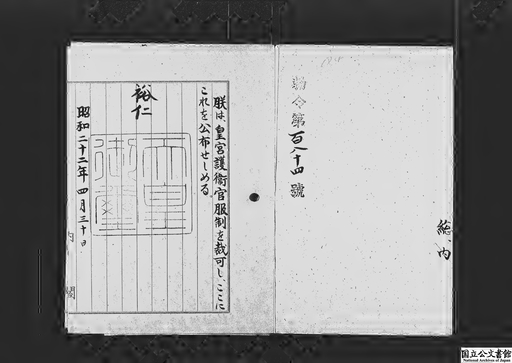 総、内
勅令第百八十四號
朕は、皇宮護衛官服制を裁可し、ここに
これを公布せしめる。
裕仁
天皇御璽
昭和二十二年四月三十日
内閣
国立公文書館
National Archives of Japan